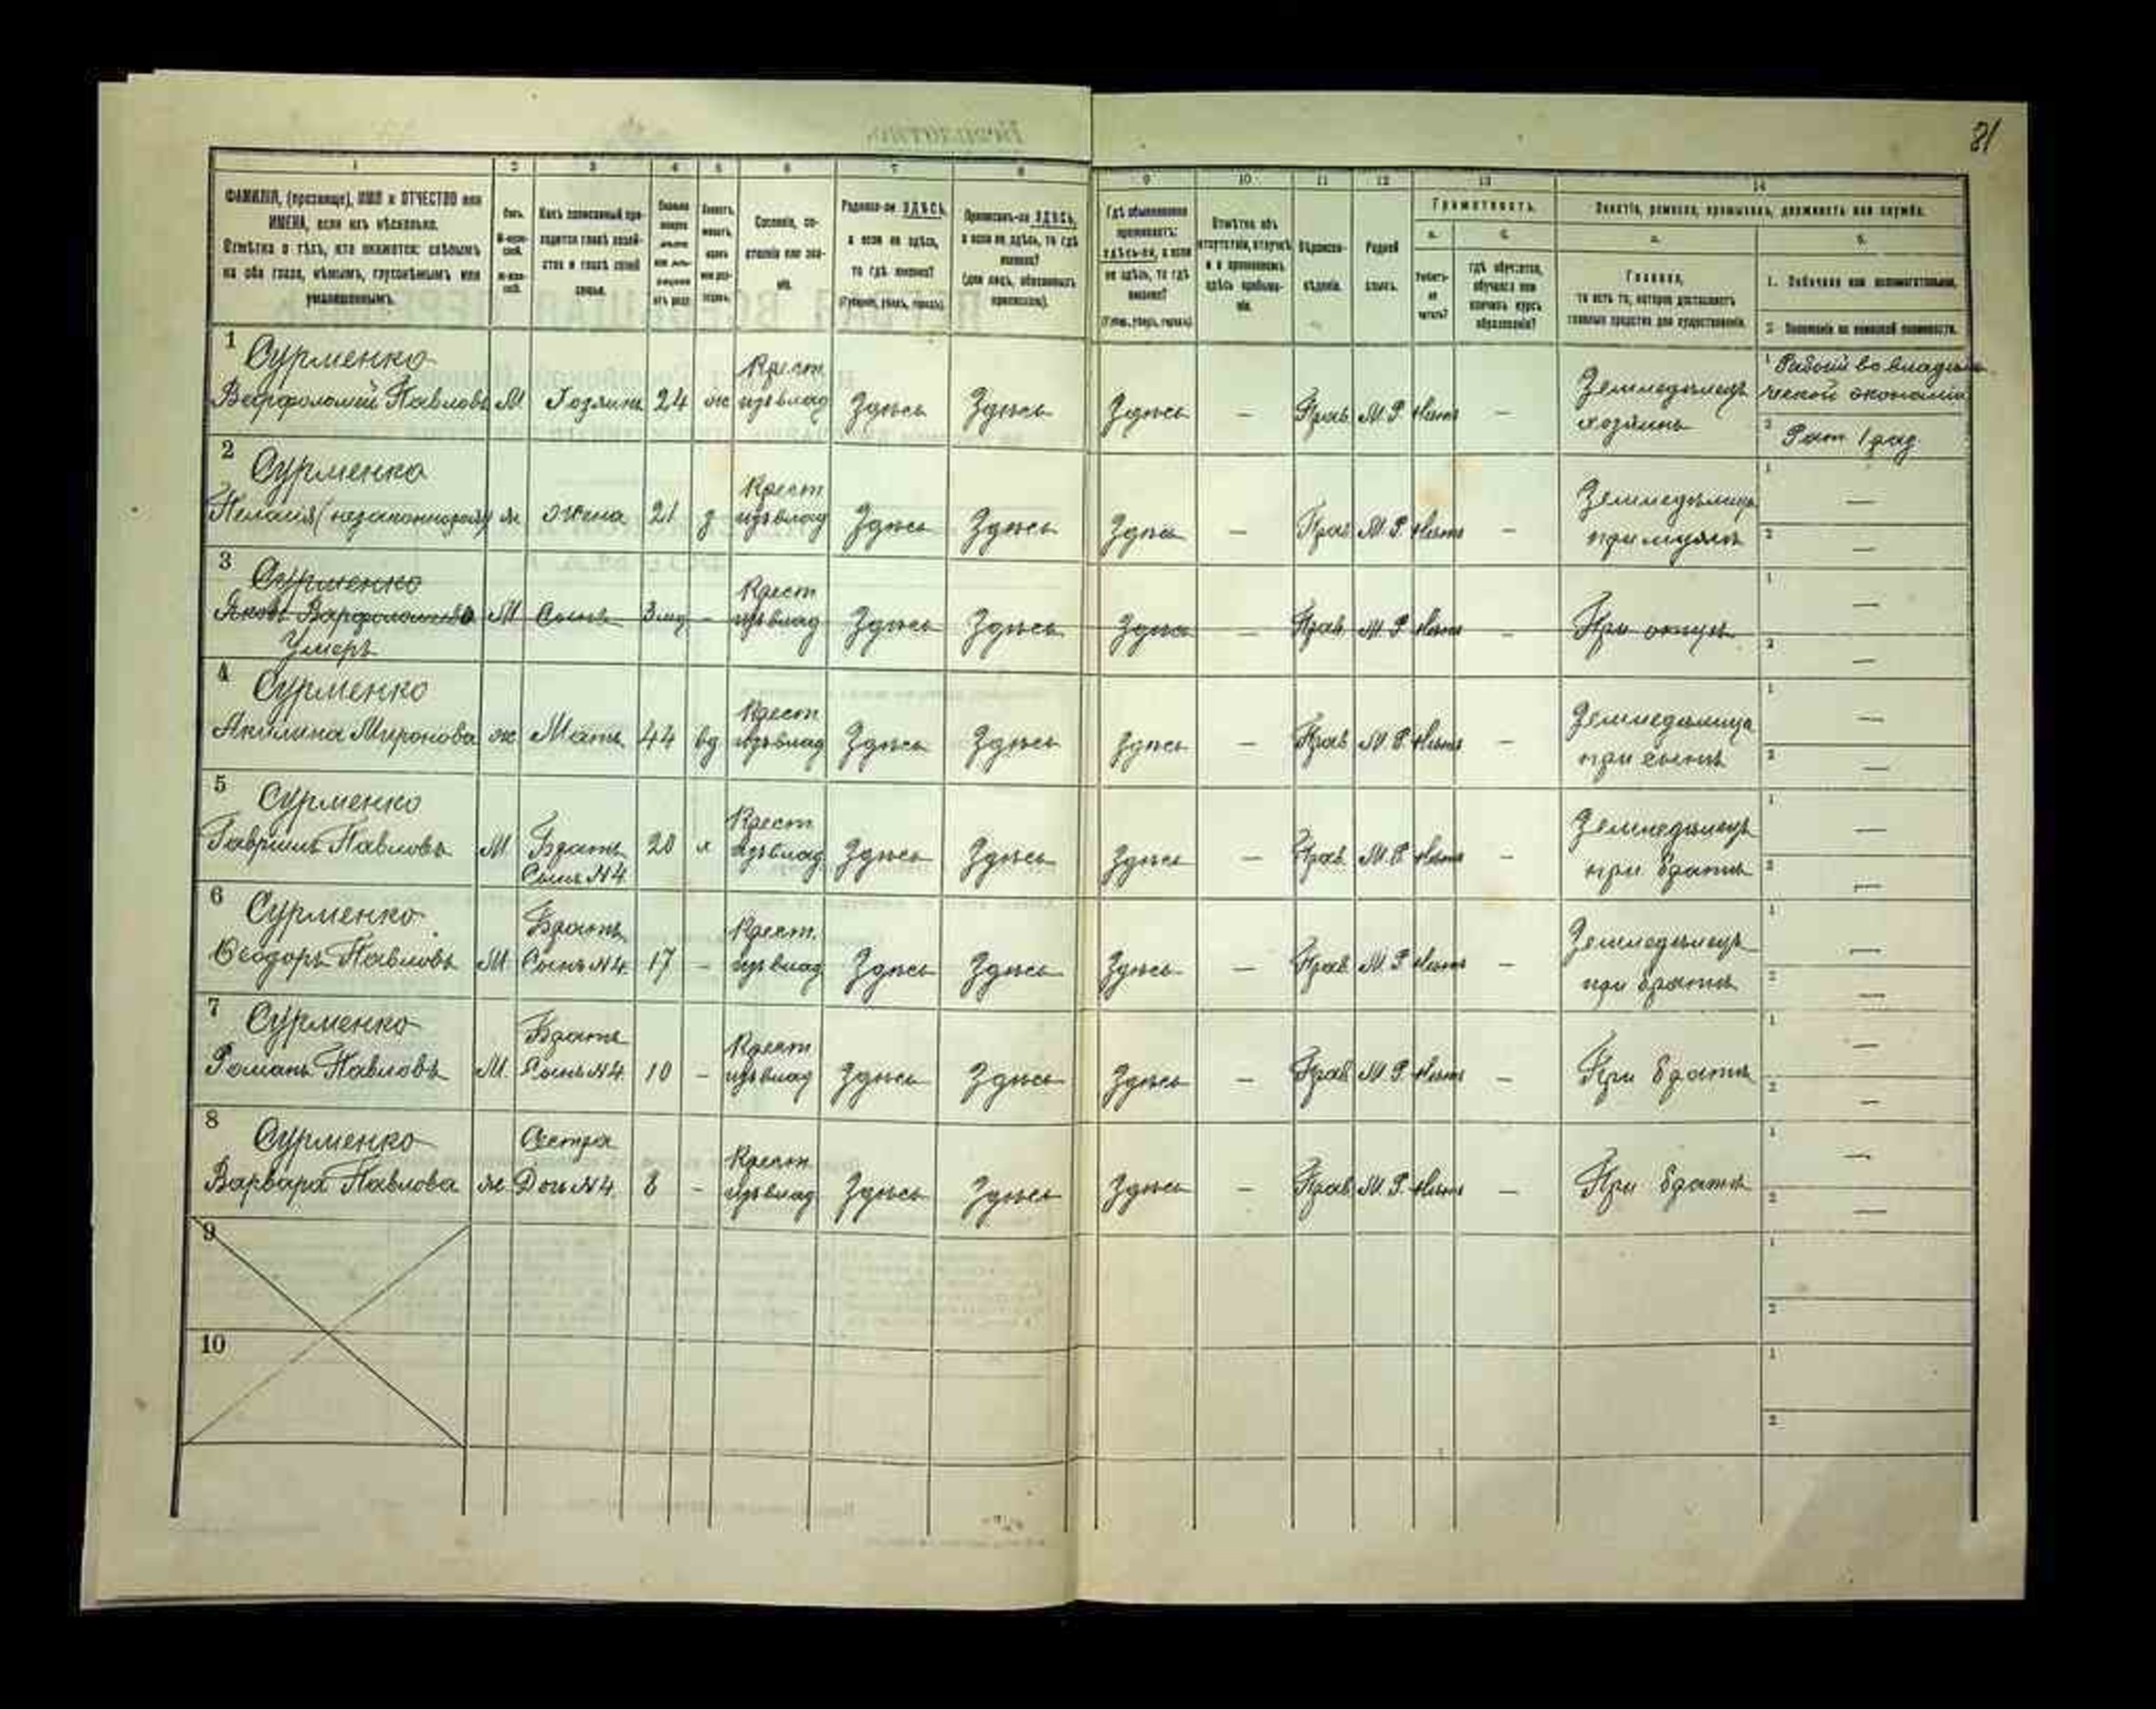 81
1 2 3 4 5 6 7 8 9 10 11 12 13 14
ФАМИЛІЯ, (прозвище), ИМЯ и ОТЧЕСТВО или
ИМЕНА, если ихъ нѣсколько.
Отмѣтка о тѣхъ, кто окажется: слѣпымъ
на оба глаза, нѣмымъ, глухонѣмымъ или
умалишеннымъ.
Полъ.
Какъ записанный при-
ходится главѣ хозяй-
ства и главѣ своей
семьи.
Сословіе, со-
стояніе или зва-
ніе.
Родился-ли ЗДѢСЬ,
а если не здѣсь,
то гдѣ именно?
(Губернія, уѣздъ, городъ).
Приписанъ-ли ЗДѢСЬ,
а если не здѣсь, то гдѣ
именно?
(для лицъ, обязанныхъ
припискою).
Гдѣ обыкновенно
проживаетъ:
здѣсь-ли, а если
не здѣсь, то гдѣ
именно?
(Губер., уѣздъ, городъ).
Отмѣтка объ
отсутствіи, отлучкѣ
и о временномъ
здѣсь пребыва-
ніи.
Вѣроиспо-
вѣданіе.
Родной
языкъ.
Грамотность.
а. б.
Умѣетъ-
ли
читать?
гдѣ обучается,
обучался или
кончилъ курсъ
образованія?
Занятіе, ремесло, промыселъ, должность или служба.
а. б.
Главное,
то есть то, которое доставляетъ
главныя средства для существованія.
1. Побочное или вспомогательное.
2. Положеніе по воинской повинности.
1 Сурменко
Варфоломей Павловъ М Хозяинъ 24 ж Крест. изъ влад Здѣсь Здѣсь Здѣсь — Прав. М.Р. Нѣтъ — Земледѣлецъ хозяинъ
1 Рабочій во владѣль
ческой экономіи
2 Рат. 1 раз.
2 Сурменко
Пелагія (незаконнорож) ж Жена 21 з Крест изъ влад Здѣсь Здѣсь Здѣсь — Прав М.Р. Нѣтъ — Земледѣлица при мужѣ 1 — 2 —
3 Сурменко
Яковъ Варфоломеевъ М Сынъ 3 мц - Крест изъ влад Здѣсь Здѣсь Здѣсь — Прав. М.Р. Нѣтъ — При отцѣ 1 — 2 —
Умеръ
4 Сурменко
Акилина Миронова ж Мать 44 вд Крест изъ влад Здѣсь Здѣсь Здѣсь — Прав М.Р. Нѣтъ — Земледѣлица при сынѣ 1 — 2 —
5 Сурменко
Гавріилъ Павловъ М Братъ Сынъ №4 20 х Крест изъ влад Здѣсь Здѣсь Здѣсь — Прав. М.Р. Нѣтъ — Земледѣлецъ при братѣ 1 — 2 —
6 Сурменко
Ѳеодоръ Павловъ М Братъ Сынъ №4 17 - Крест. изъ влад Здѣсь Здѣсь Здѣсь — Прав М.Р. Нѣтъ — Земледѣлецъ при братѣ 1 — 2 —
7 Сурменко
Романъ Павловъ М. Братъ Сынъ №4 10 - Крест изъ влад Здѣсь Здѣсь Здѣсь — Прав М.Р. Нѣтъ — При братѣ 1 — 2 —
8 Сурменко
Варвара Павлова ж Сестра Дочь №4. 8 - Крест изъ влад Здѣсь Здѣсь Здѣсь — Прав М.Р. Нѣтъ — При братѣ 1 — 2 —
9 1 2
10 1 2